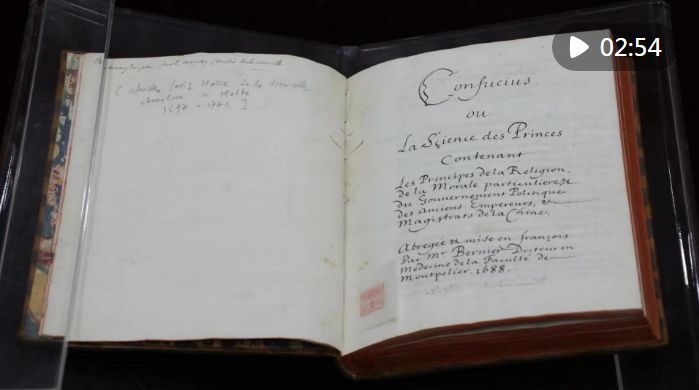 02:54
[
Marie de la
Malte
1697 - 1771 ]
Confucius.
ou
La Science des Princes
Contenant
Les Principes de la Religion,
de la Morale particuliere,
du Gouvernement Politique
des Anciens Empereurs, &
Magistrats de la Chine.
Abregée & mise en françois
Par Mr. Bernier Docteur en
Medecine de la Faculté de
Montpelier. 1688.